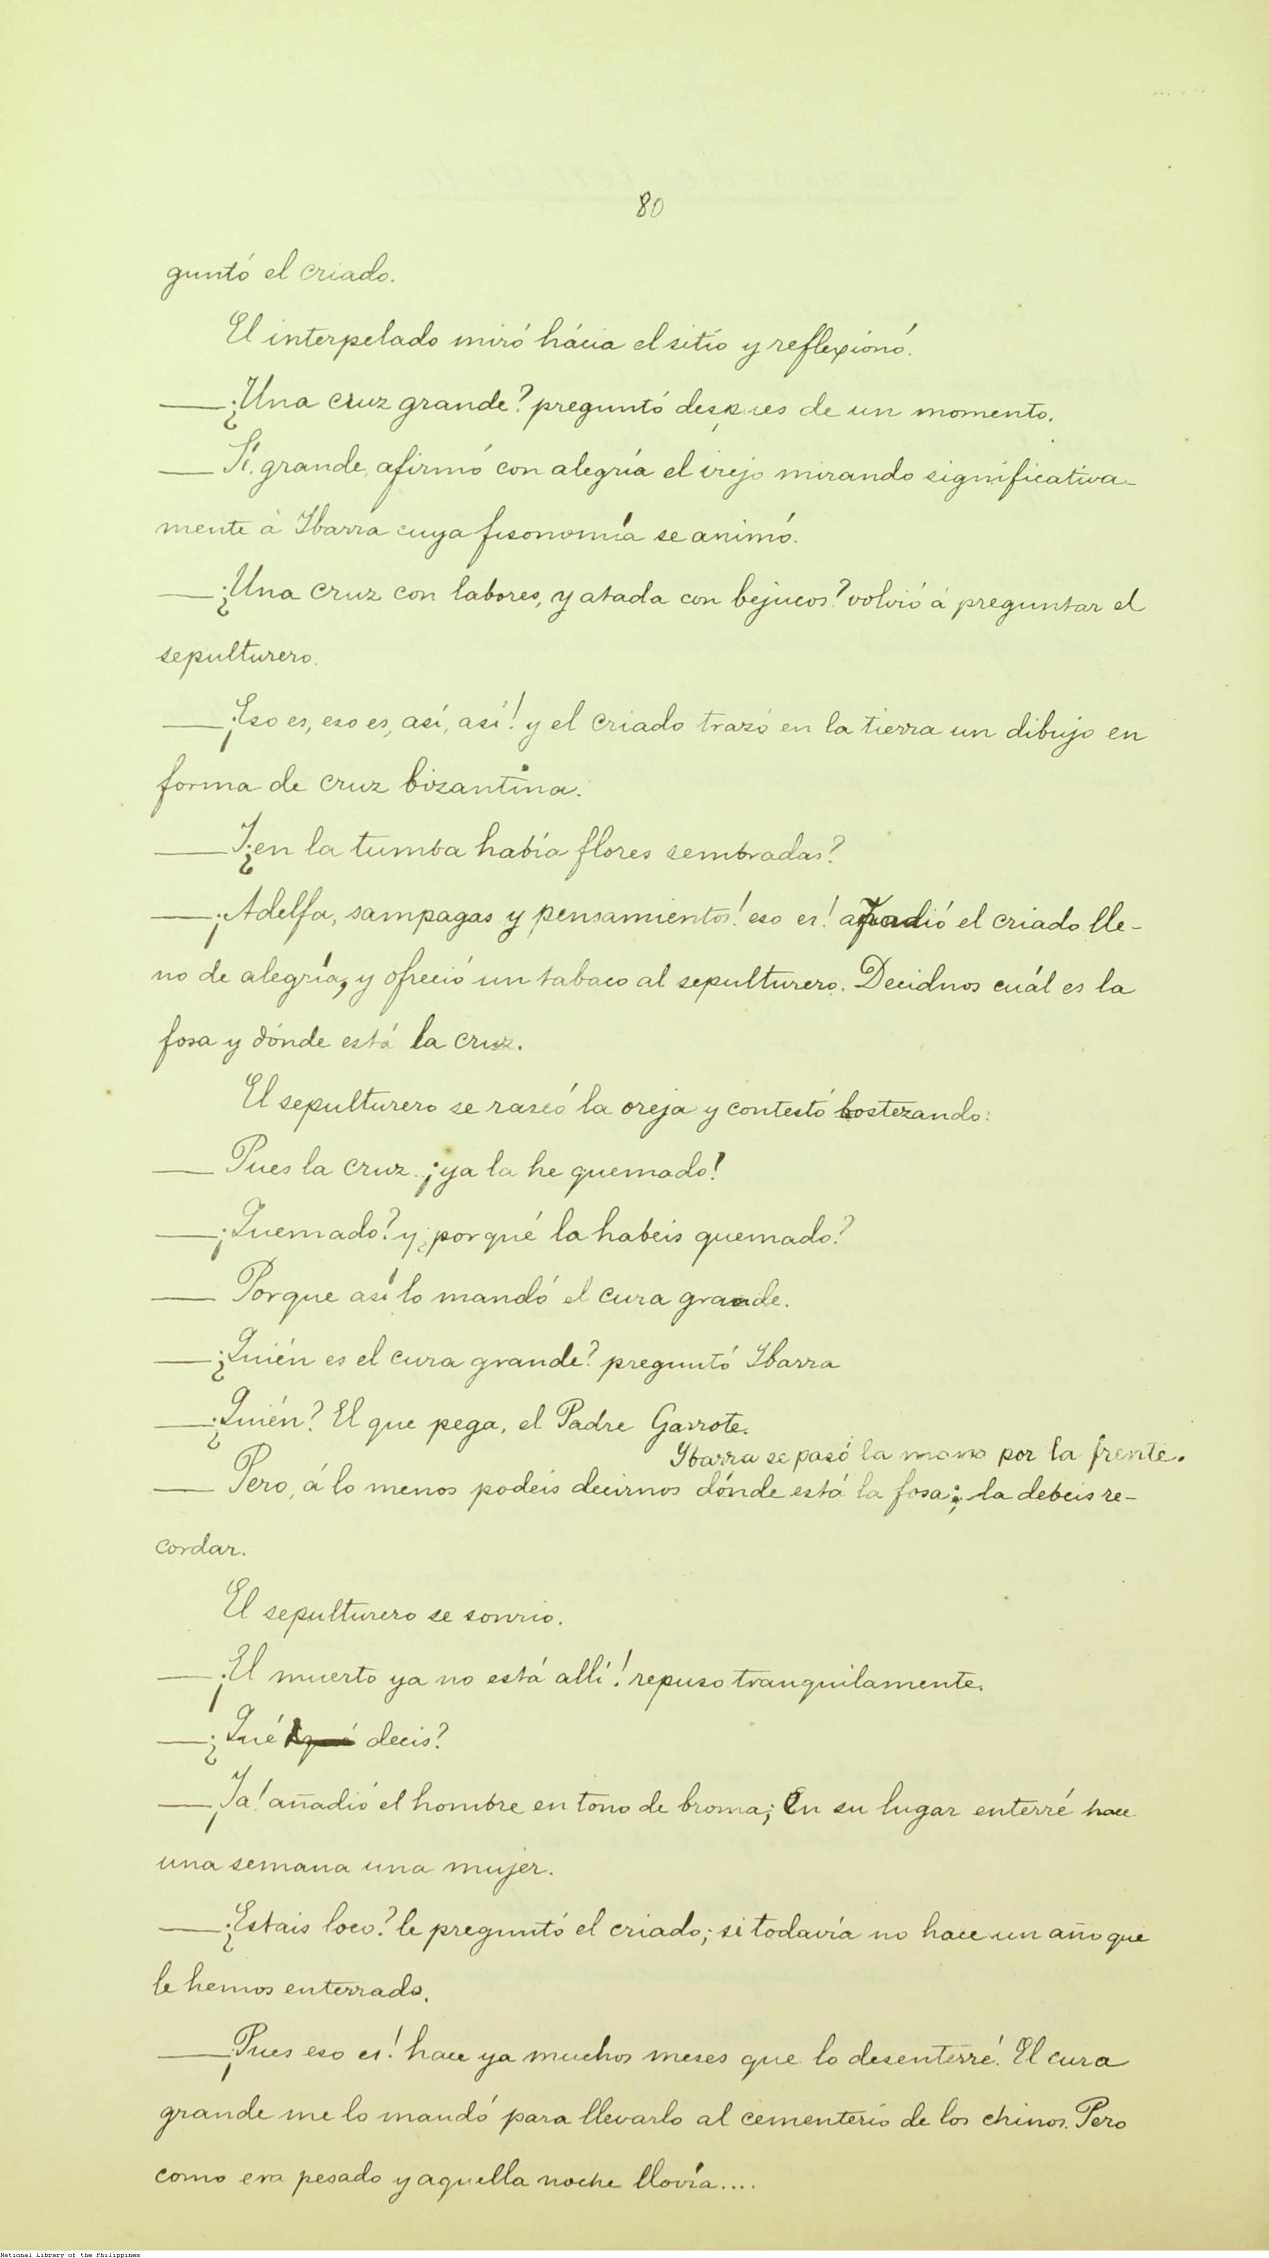 80
guntó el criado.
El interpelado miró hácia el sitio y reflexionó.
—¿Una cruz grande? preguntó despues de un momento.
— Sí, grande, afirmó con alegría el viejo mirando significativa-
mente á Ibarra cuya fisonomía se animó.
—¿Una cruz con labores, y atada con bejucos? volvió á preguntar el
sepulturero.
—¡Eso es, eso es, así, así! y el criado trazó en la tierra un dibujo en
forma de cruz bizantina.
—Y ¿en la tumba había flores sembradas?
—¡Adelfa, sampagas y pensamientos! eso es! añadió el criado lle-
no de alegría, y ofreció un tabaco al sepulturero. Decidnos cuál es la
fosa y dónde está la cruz.
El sepulturero se rascó la oreja y contestó bostezando:
— Pues la cruz.. ¡ya la he quemado!
—¡Quemado? y ¿porqué la habeis quemado?
— Porque así lo mandó el cura grande.
—¿Quién es el cura grande? preguntó Ibarra
—¿Quién? El que pega, el Padre Garrote.
Ibarra se pasó la mano por la frente.
— Pero, á lo menos podeis decirnos dónde está la fosa; la debeis re-
cordar.
El sepulturero se sonrio.
—¡El muerto ya no está allí! repuso tranquilamente.
—¿Qué decis?
—¡Ya! añadió el hombre en tono de broma; En su lugar enterré hace
una semana una mujer.
—¿Estais loco? le preguntó el criado; si todavía no hace un año que
le hemos enterrado.
—¡Pues eso es! hace ya muchos meses que lo desenterré. El cura
grande me lo mandó para llevarlo al cementerio de los chinos. Pero
como era pesado y aquella noche llovía....
National Library of the Philippines